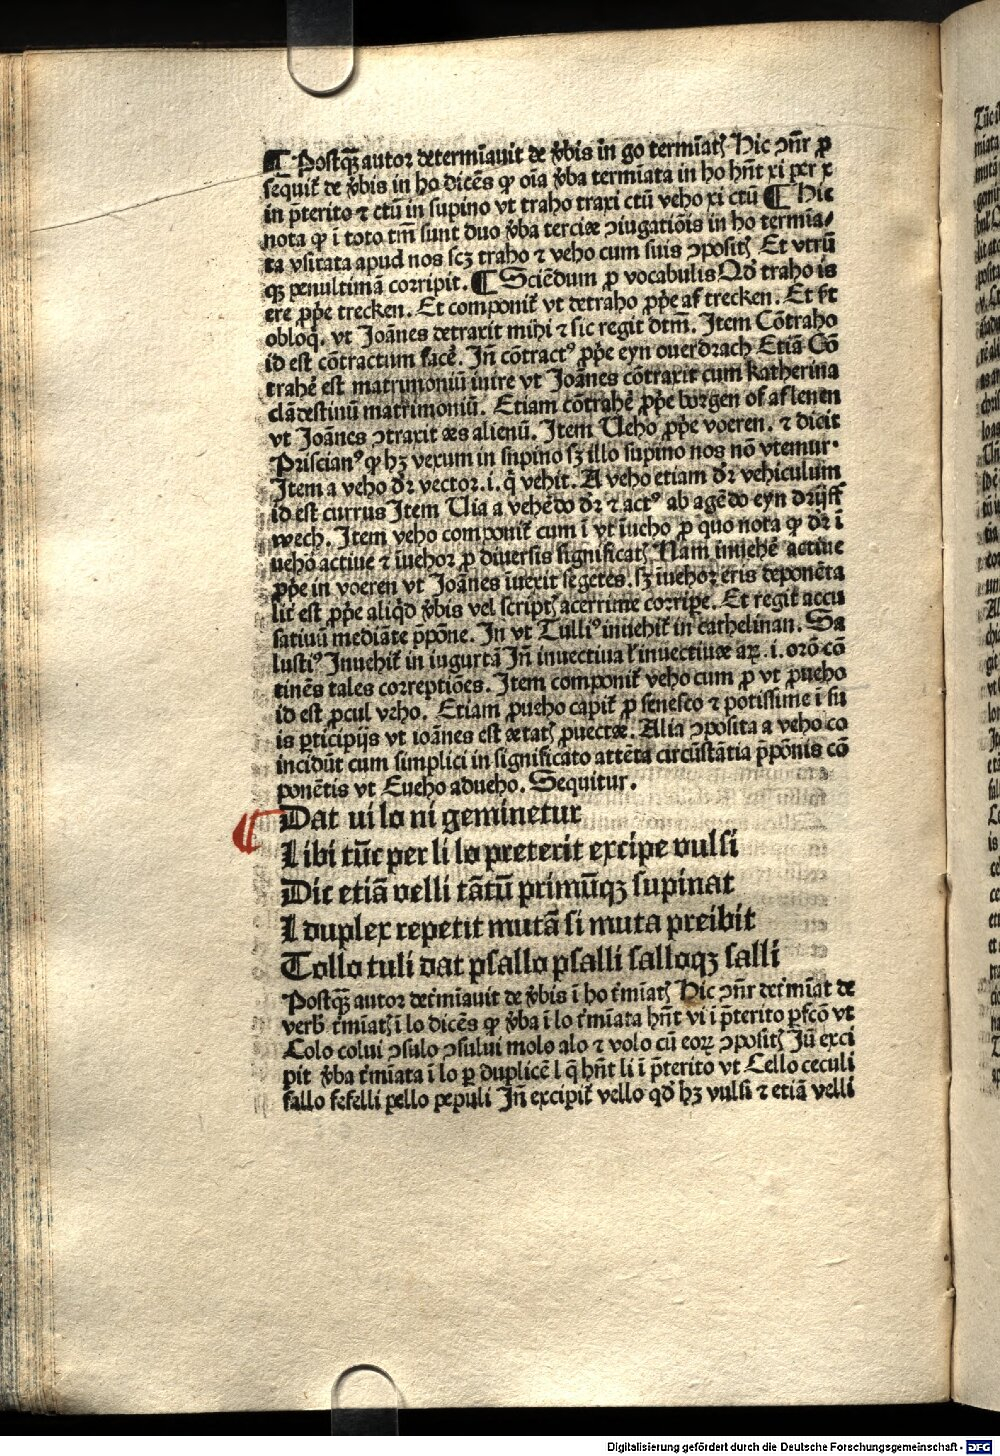 ¶ Postqȝ autor determīauit de v̄bis in go termīatꝭ Hic ꝯn̄r ꝓ
sequit᷑ de v̄bis in ho dicēs ꝙ oīa v̄ba termīata in ho hn̄t xi per x
in p̄terito ⁊ ctū in supino vt traho traxi ctū veho xi ctū ¶ Hic
nota ꝙ ī toto tm̄ sunt duo v̄ba terciæ ꝯiugatiōis in ho termīa⸗
ta vsitata apud nos scȝ traho ⁊ veho cum suis ꝯpositꝭ Et vtrū
qȝ penultimā corripit. ¶ Sciēdum ꝓ vocabulis Qd̄ traho is
ere ꝓp̄e trecken. Et componit᷑ vt detraho ꝓp̄e af trecken. Et st̄
obloq̄. vt Joānes detraxit mihi ⁊ sic regit dtm̄. Item Cōtraho
id est cōtractum facē. Jn̄ cōtractꝰ ꝓp̄e eyn ouerdrach Etiā Cō
trahē est matrimoniū inire vt Joānes cōtraxit cum Katherina
clādestinū matrimoniū. Etiam cōtrahē ꝓp̄e borgen of af lenen
vt Joānes ꝯtraxit æs alienū. Item Ueho ꝓp̄e voeren. ⁊ dicit
Priscianꝰ ꝙ hȝ vexum in supino sȝ illo supino nos nō vtemur.
Jtem a veho dr̄ vector .i. q̄ vehit. A veho etiam dr̄ vehiculum
id est currus Jtem Uia a vehēdo dr̄ ⁊ actꝰ ab agēdo eyn drijff
wech. Jtem veho componit᷑ cum ī vt īueho ꝓ quo nota ꝙ dr̄ ī
ueho actiue ⁊ īuehor ꝓ diuersis significatꝭ Nam inuehē actiue
ꝓp̄e in voeren vt Joānes īuexit segetes. sȝ īuehor eris deponēta
lit̄ est ꝓp̄e aliq̇d v̄bis vel scriptꝭ acerrime corripe. Et regit᷑ accu
satiuū mediāte p̄pōne. Jn vt Tulliꝰ inuehit᷑ in cathelinan. Sa
lustiꝰ Jnuehit᷑ in iugurtā Jn̄ inuectiua l̄ inuectiuæ aꝝ .i. orō cō
tinēs tales correptiōes. Jtem componit᷑ veho cum ꝓ vt ꝓueho
id est ꝓcul veho. Etiam ꝓueho capit᷑ ꝓ senesco ⁊ potissime ī su
is ꝑticipijs vt ioānes est ætatꝭ ꝓuectæ. Alia ꝯposita a veho co
incidūt cum simplici in significato attēta circūstātia p̄pōnis cō
ponētis vt Eueho adueho. Sequitur.
Dat ui lo ni geminetur
L ibi tūc per li lo preterit excipe vulsi
Dic etiā velli tātū primūqȝ supinat
L duplex repetit mutā si muta preibit
Tollo tuli dat psallo psalli salloqȝ salli
Postqȝ autor det̄mīauit de v̄bis ī ho t̄mīatꝭ Hic ꝯn̄r det̄mīat de
verbꝭ t̄mīatꝭ ī lo dicēs ꝙ v̄ba ī lo t̄mīata hn̄t vi ī p̄terito ꝑfcō vt
Colo colui ꝯsulo ꝯsului molo alo ⁊ volo cū eoꝝ ꝯpositꝭ Jn̄ exci
pit v̄ba t̄mīata ī lo ꝑ duplicē l q̄ hn̄t li ī p̄terito vt Cello ceculi
fallo fefelli pello pepuli Jn̄ excipit᷑ vello qd̄ hȝ vulsi ⁊ etiā velli
Digitalisierung gefördert durch die Deutsche Forschungsgemeinschaft - DFG